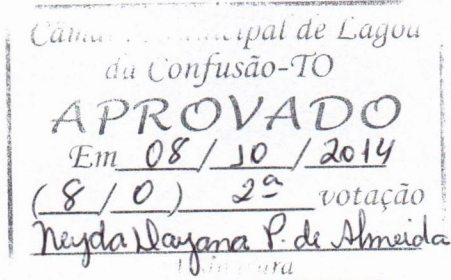 de Lagoa
da Confusão-TO
APROVADO
Em 08/10/2014
(8/0) 2ª votação
Neyda Dayana P. de Almeida